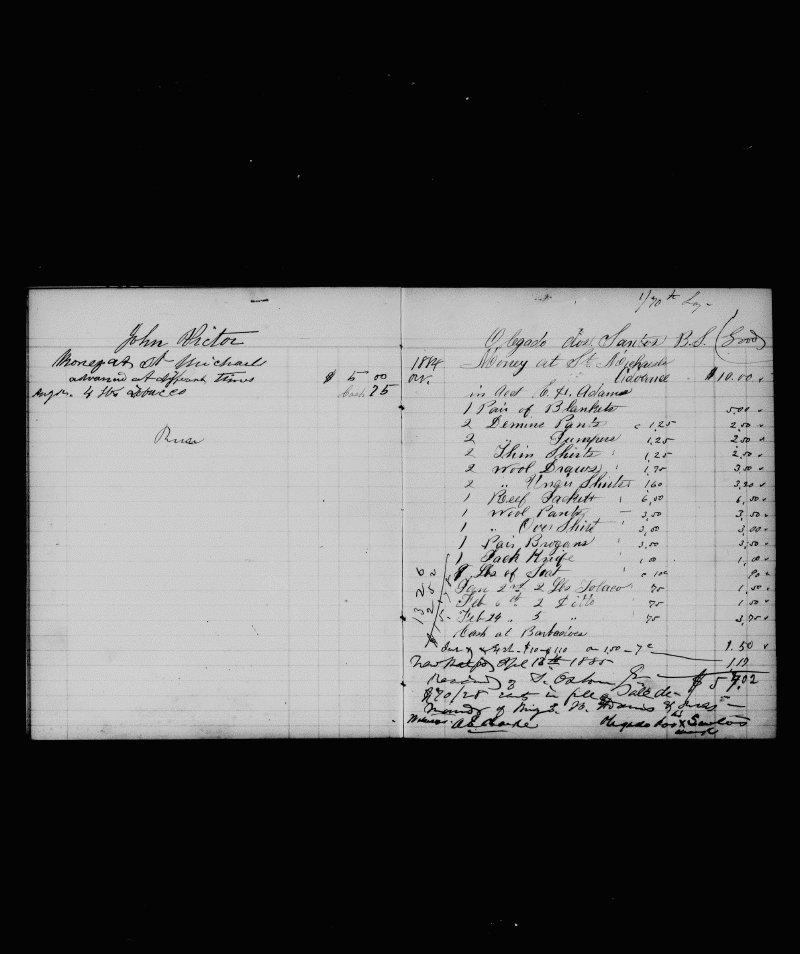 John Victor
Money at St Michaels
advanced at different times $ 5 00
4 lbs Tobacco Cash 75
Run
1/70th Lay
Olegado dos Santos B.S. (Good)
1884 Money at St Michaels
Nov. Advance $10.00
in acct C. H. Adams
1 Pair of Blankets 5.00
2 Demins Pants c 1,25 2,50
2 " Jumpers 1,25 2,50
2 Thin Shirts " 1,25 2,50
2 Wool Draws " 1,75 3,50
2 " Under Shirts 1,60 3,20
1 Reef Jackett " 6,50 6,50
1 Wool Pants 3,50 3,50
1 " Over Shirt " 3,00 3,00
1 Pair Brogans " 3,50 3,50
1 Jack Knife " 1,00 1,00
9 Lbs of Soap c 10c 90
Jan 2nd 2 Lbs Tobaco 75 1,50
Feb 6th 2 Ditto 75 1,50
Feb 24 " 5 " 75 3,75
Cash at Barbadoes 1.50
1.19
New Bedford Apl 18th 1885
Received of S. Osborn Jr $57.02
$70/28 cents in full
A E Clarke Olegado dos Santos
his
X
mark